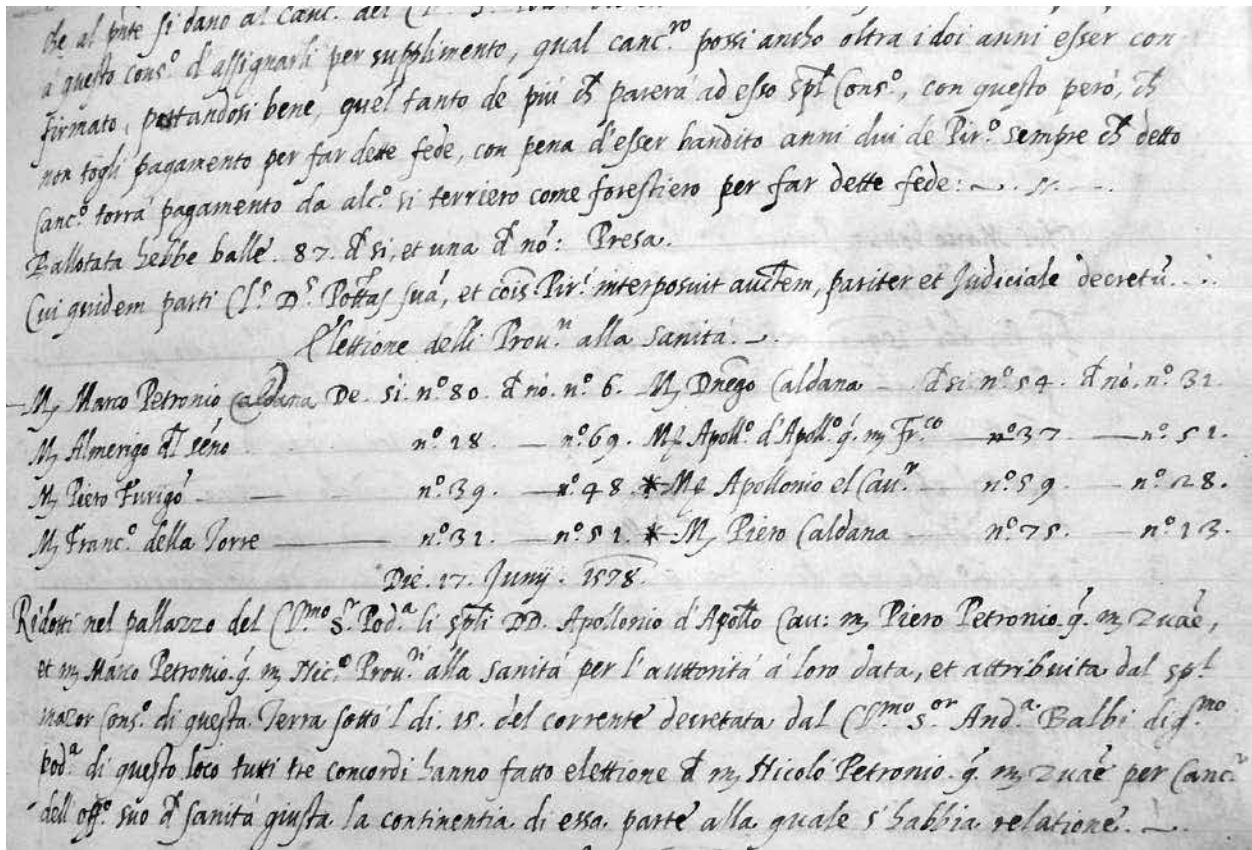 che al pñte si dano al Canc.
a questo cons.º d'assignarli per supplimento, qual canc.ro possi ancho oltra i doi anni esser con
firmato, portandosi bene, quel tanto de più ch parerà ad esso spl Cons.º, con questo però, ch
non togli pagamento per far dette fede, con pena d'esser bandito anni dui de Pir.º sempre ch detto
Canc.º torrà pagamento da alc.º si terriero come forestiero per far dette fede:
Ballotata hebbe balle. 87. d si, et una d nò: Presa.
Cui quidem parti Cl.s D.s Pottas suã, et cõis Pir.i interposuit auctem, pariter et Judiciale decretũ.
Elettione delli Prov.ri alla Sanità.
M, Marco Petronio Caldana De. si. nº 80. d nò. nº 6. M, Dnego Caldana d si. nº 54. d nò. nº 32.
M, Almerigo dl Séno nº 18. nº 69. M, Apoll.º d'Apoll.º q. m, Fr.co nº 37. nº 51.
M, Piero Furigò nº 39. nº 48. * M, Apollonio el Cav.r nº 59. nº 28.
M, Franc.º della Torre nº 32. nº 51. * M, Piero Caldana nº 75. nº 13.
Die. 17. Junij. 1578.
Ridotti nel pallazzo del Cl.mo S.r Pod.a li spli DD. Apollonio d'Apollo Cav: m, Piero Petronio. q. m, Zuãe,
et m, Marco Petronio. q. m, Nic.º Prov.ri alla Sanità per l'auttorità à loro data, et attribuita dal sp.l
mazor Cons.º di questa Terra sotto 'l di. 15. del corrente decretata dal Cl.mo S.or And.a Balbi dig.mo
pod.a di questo loco tutti tre concordi hanno fatto elettione d m, Nicolò Petronio. q. m, Zuãe per Canc.r
dell'off.º suo d sanità giusta la continentia di essa parte alla quale s'habbia relatione.